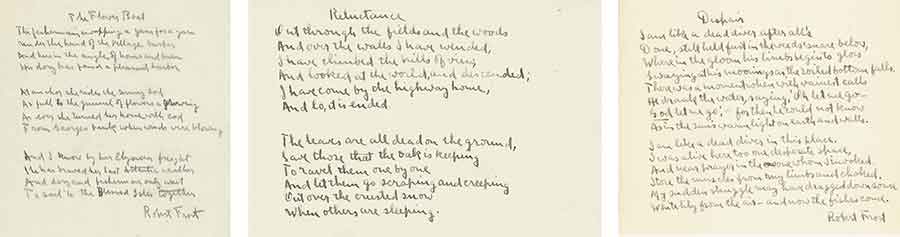 The Flower Boat
The fisherman swapping a yarn for a yarn
Under the hand of the village barber
And here in the angle of house and barn
His dory has found a pleasant harbor
At anchor she rides the sunny sod
As full to the gunnel of flowers a growing
As ever she turned her home with cod
From Georges bank when winds were blowing
And I know by her Elysian freight
has braved her last Atlantic weather
And dory and fisherman only wait
To sail the Blessed Isles together
Robert Frost
Reluctance
Out through the fields and the woods
And over the walls I have wended,
I have climbed the hills of view
And looked at the world, and descended;
I have come by the highway home,
And lo, it is ended.
The leaves are all dead on the ground,
Save those that the oak is keeping
To ravel them one by one
And let them go scraping and creeping
Out over the crusted snow
When others are sleeping.
Despair
I am like a dead diver after all's
Done, still held fast in the weeds' snare below,
Where in the gloom his limbs begin to glow
Swaying at his moorings as the roiled bottom falls.
There was a moment when with vainest calls
He drank the water, saying, 'Oh let me go—
God let me go,'—for then he could not know
As in the sun's warm light on earth and walls.
I am like a dead diver in this place.
I was alive here too one desperate space,
And near prayer in the one whom I invoked.
I tore the muscles from my limbs and choked.
My sudden struggle may have dragged down some
White lily from the air—and now the fishes come.
Robert Frost